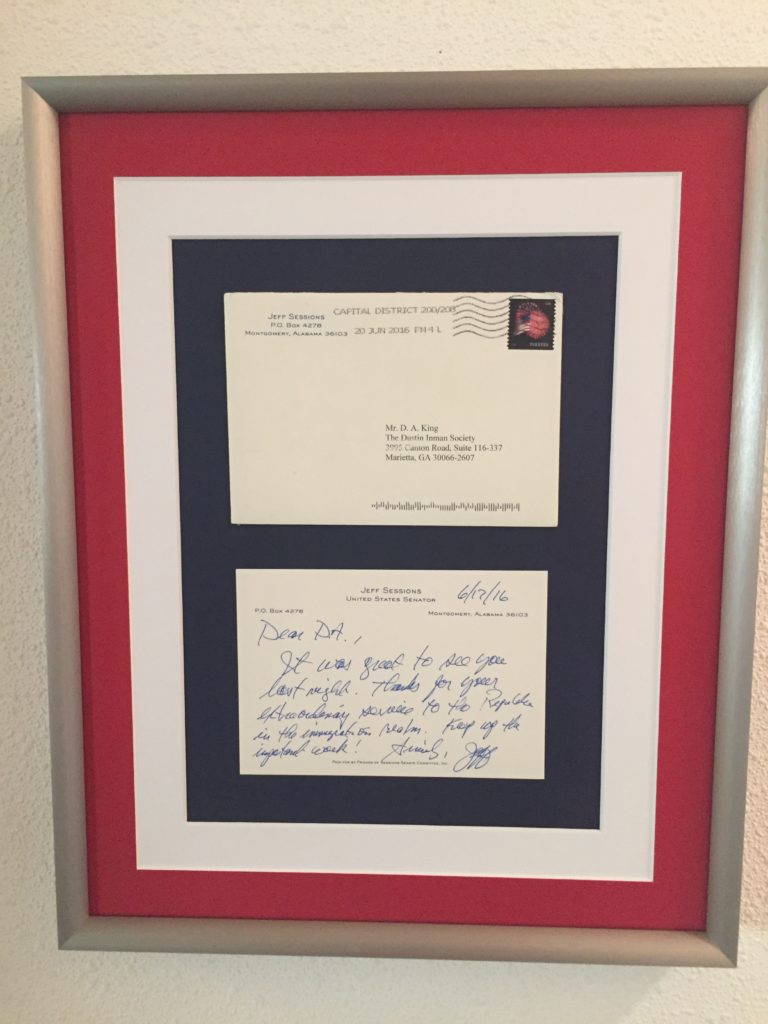 JEFF SESSIONS
P.O. BOX 4278
MONTGOMERY, ALABAMA 36103
CAPITAL DISTRICT 200/208
20 JUN 2016 PM 4 L
Mr. D. A. King
The Dustin Inman Society
3595 Canton Road, Suite 116-337
Marietta, GA 30066-2607
JEFF SESSIONS
UNITED STATES SENATOR
6/17/16
P.O. BOX 4278
MONTGOMERY, ALABAMA 36103
Dear D.A.,
It was great to see you
last night. Thanks for your
extraordinary service to the Republic
in the immigration realm. Keep up the
important work! Sincerely, Jeff
PAID FOR BY FRIENDS OF SESSIONS SENATE COMMITTEE, INC.